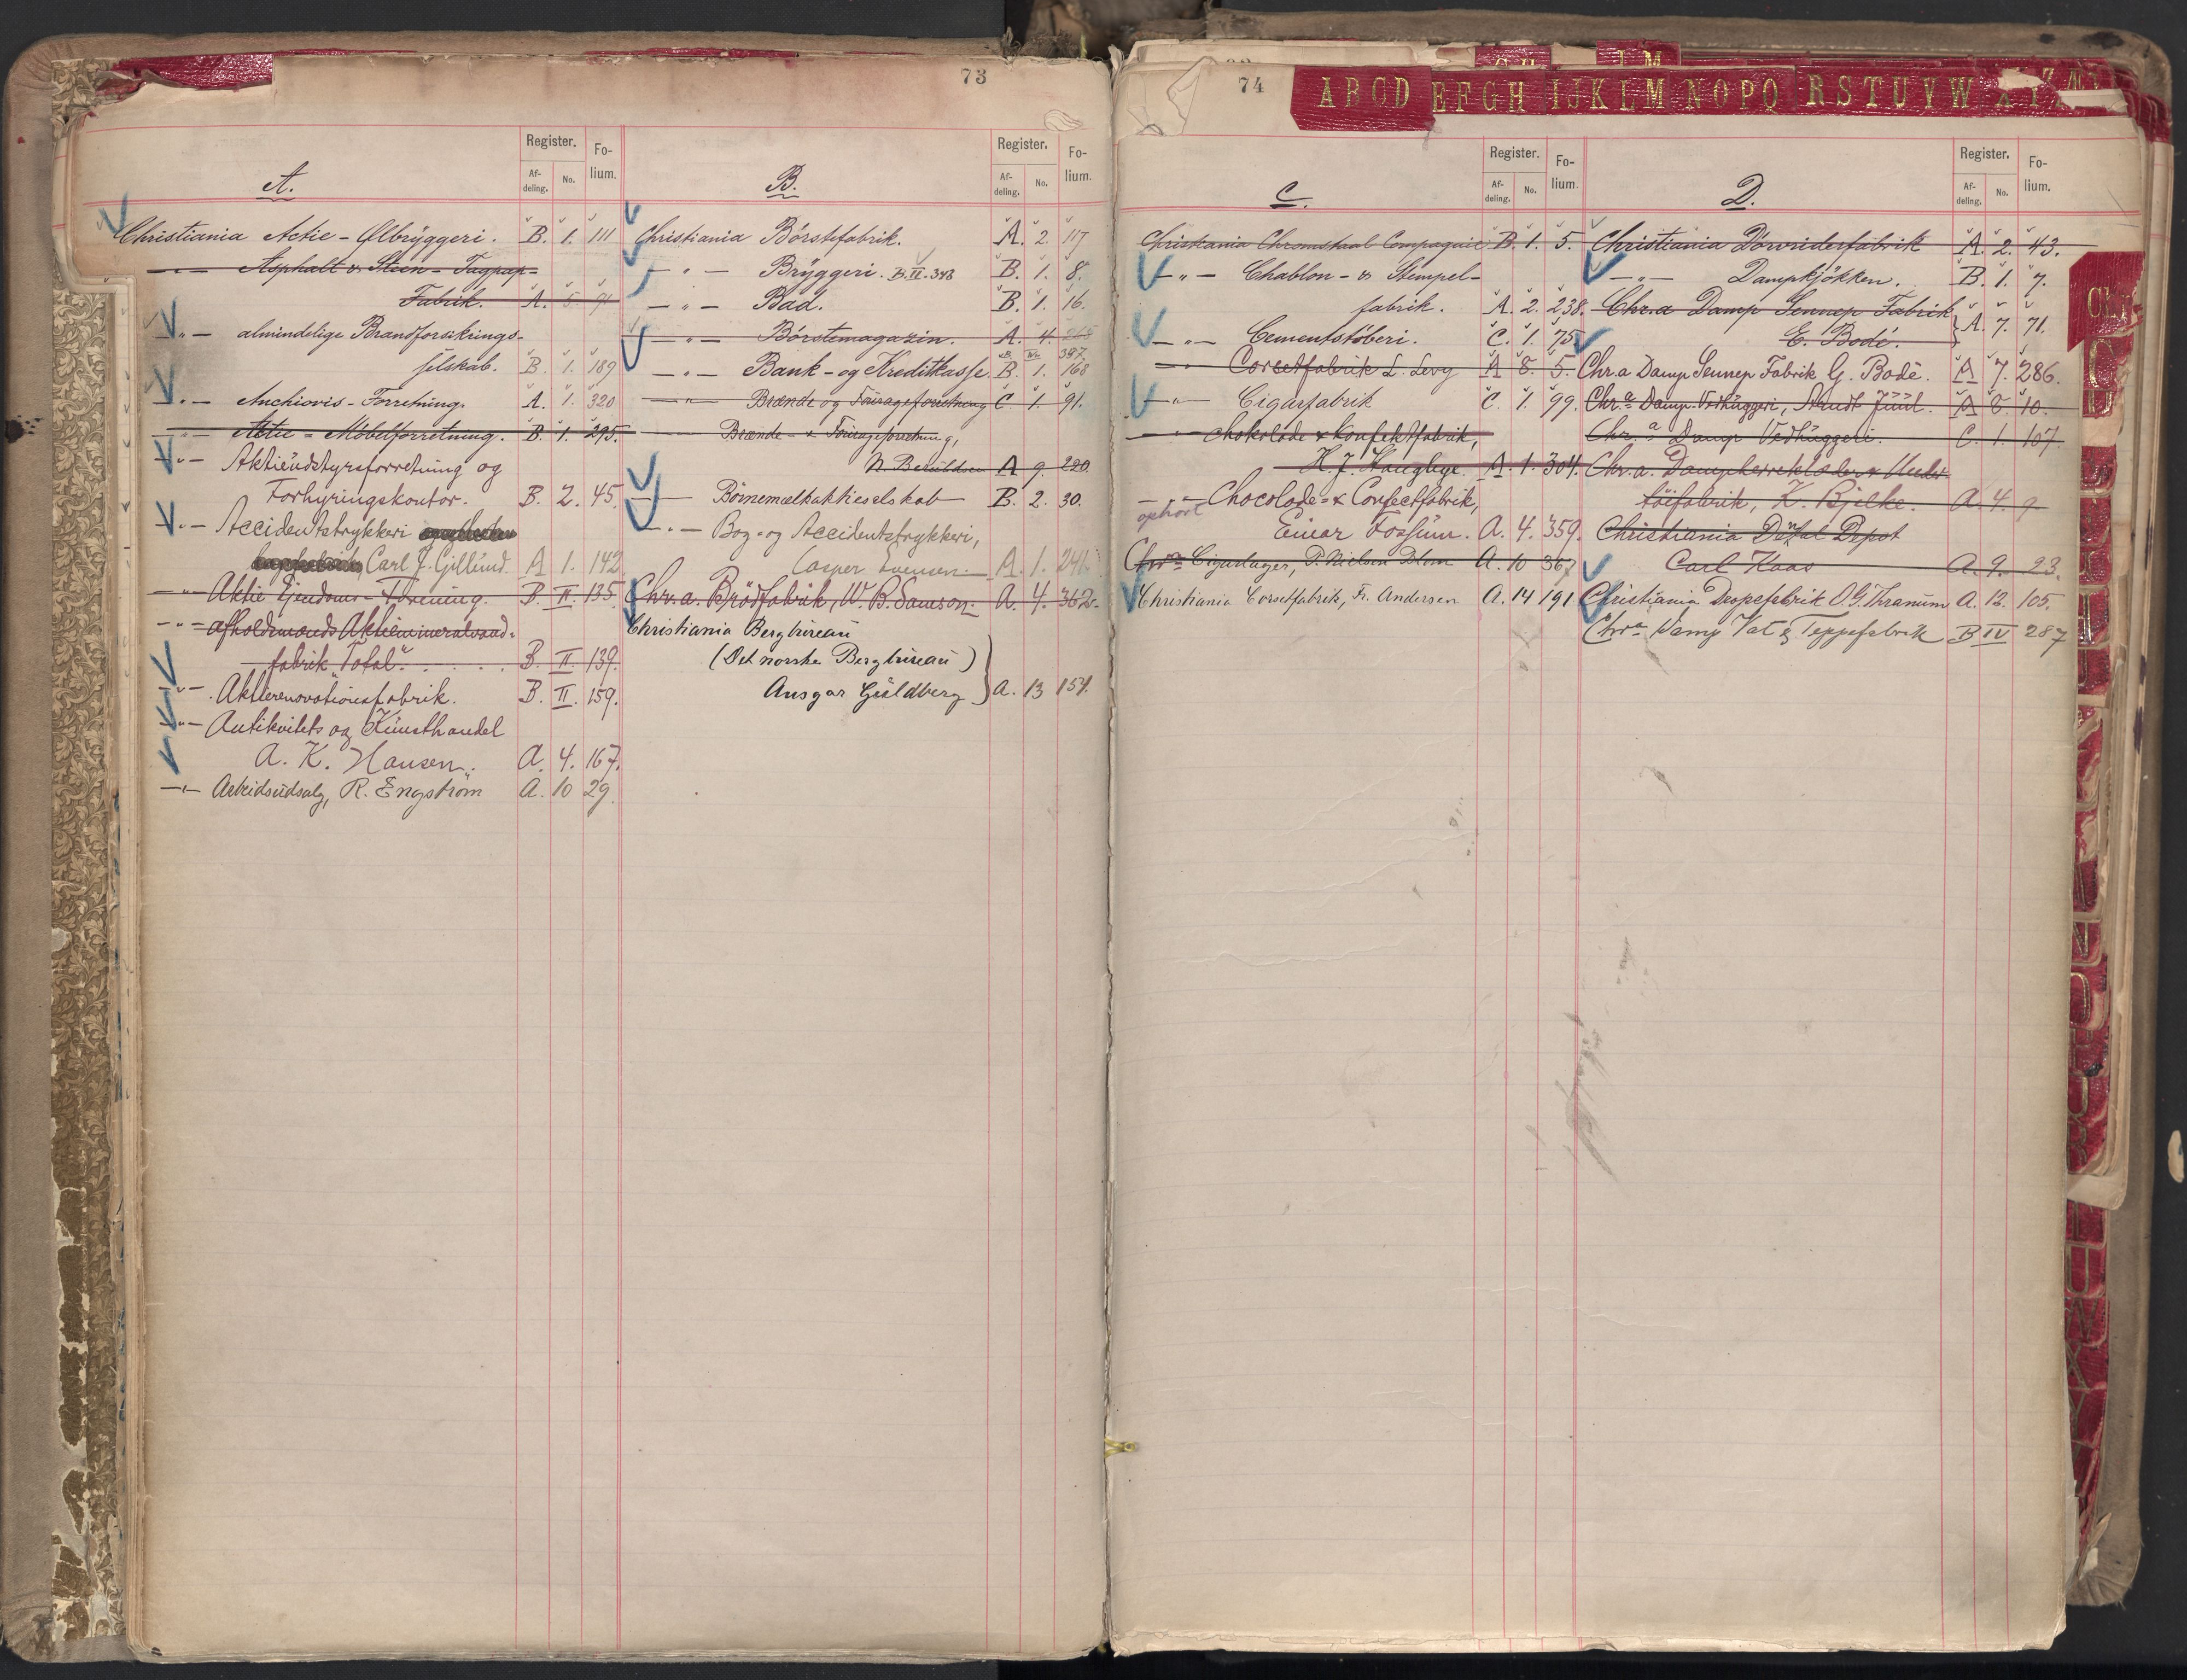 73
Register.
Fo-
lium.
Af-
deling.
No.
A.
Christiania Actie-Ølbryggeri. B. 1. 111
—"— Asphalt & Steen-Tagpap-
Fabrik. A. 5. 91
—"— almindelige Brandforsikrings-
selskab. B. 1. 189
—"— Anchiovis-Forretning. A. 1. 320
—"— Actie-Møbelforretning. B. 1. 295.
—"— Aktieudstyrsforretning og
Forhyringskontor. B. 2. 45.
—"— Accidentstrykkeri
Carl J. Gillund. A 1. 142
—"— Aktie Ejendoms-Forening. B. II. 135.
—"— afholdmands Aktiemineralvand-
fabrik "Total". B. II. 139.
—"— Aktierenovationsfabrik. B. II. 159.
—"— Antikvitets og Kunsthandel
A. K. Hansen. A. 4. 167.
—"— Arbeidsudsalg, R. Engström A. 10 29.
Register.
Fo-
lium.
Af-
deling.
No.
B.
Christiania Børstefabrik. A. 2. 117
—"— Bryggeri. B. II. 348 B. 1. 8.
—"— Bad. B. 1. 16.
—"— Børstemagazin. A. 4. 265
—"— Bank- og Kreditkasse. B. 1. 168
387.
—"— Brænde og Fourageforretning C. 1. 91.
—"— Brænde- & Fourageforretning,
N. A 9. 220.
—"— Børnemelkaktieselskab B. 2. 30.
—"— Bog- og Accidentstrykkeri,
Casper Evensen. A. 1. 241.
Chr.a. Brödfabrik, W. B. Samson. A. 4. 362.
Christiania Bergbureau
(Det norske Bergbureau)
Ansgar Guldberg } A. 13 154.
74
A B C D E F G H I J K L M N O P Q R S T U V W X Y Z Æ
Register.
Fo-
lium.
Af-
deling.
No.
C.
Christiania Chromstaal Compagnie B. 1. 5.
—"— Chablon- & Stempel-
fabrik. A. 2. 238.
—"— Cementstøberi. C. 1. 75.
—"— Corsetfabrik L. Levy A 8. 5.
—"— Cigarfabrik C. 1. 99.
—"— Chokolade & Konfektfabrik,
H. J. Hauglege A. 1. 304.
—"— Chocolade- & Confectfabrik,
ophørt
Einar Fossum. A. 4. 359.
Chra Cigarlager, P. Nielsen Blom A. 10 367
Christiania Corsetfabrik, Fr. Andersen A. 14 191
Register.
Fo-
lium.
Af-
deling.
No.
D.
Christiania Dørvriderfabrik A. 2. 43.
—"— Dampkjøkken. B. 1. 7.
Chr.a Damp Sennep Fabrik
E. Bodé. } A. 7. 71.
Chr.a Damp Sennep Fabrik G. Bodé. A 7. 286.
Chr.a Damp-Vedhuggeri, Arndt Juul. A 6. 10.
Chr.a Damp Vedhuggeri. C. 1. 107.
Chr.a. & Under-
töifabrik, K. Bjelke. A. 4. 9
Christiania Dental Depot
Carl Kaas A. 9. 23.
Christiania Dropsfabrik O. G. Thranum A. 12. 105.
Chra Damp Vat & Teppefabrik B IV 287
Chr